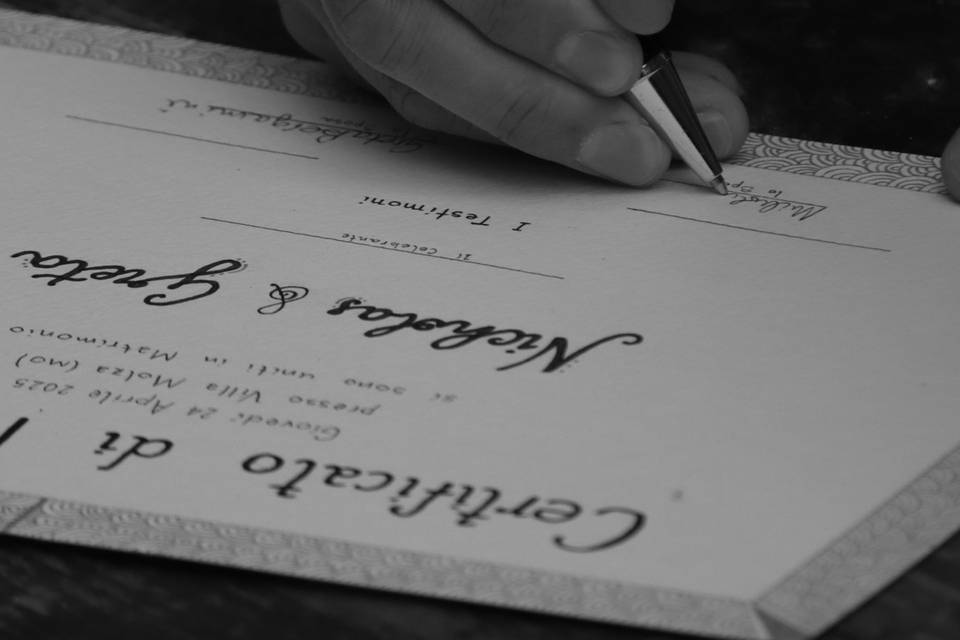 Certificato di
Giovedì 24 Aprile 2025
presso Villa Molza (MO)
si sono uniti in Matrimonio
Nicholas & Greta
Il Celebrante
I Testimoni
lo Sp
Nichol
sposa
Greta Bergamini